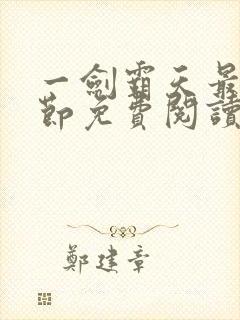 一劍霸天最
節免費閱讀
鄭建章